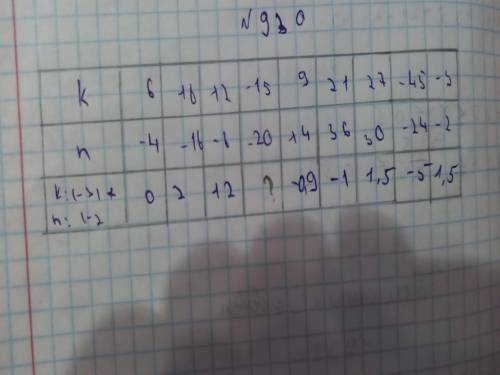 №930
k 6 18 12 -15 9 21 27 -45 -3
n -4 -16 -8 -20 14 36 30 -24 -2
k:(-3)+ 0 2 12 ? -0,9 -1 1,5 -5 1,5
n:(-2